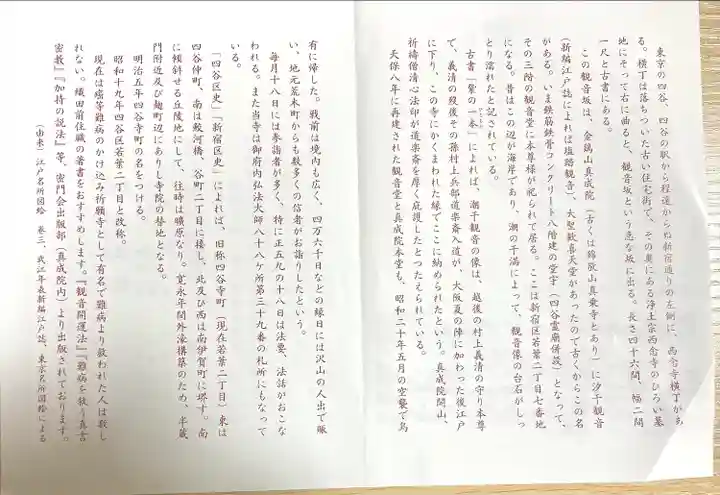 東京の四谷、四谷の駅から程遠からぬ新宿通りの左側に、西念寺横丁があ
る。横丁は落ちついた古い住宅街で、その奥にある浄土宗西念寺のひろい墓
地にそって右に曲ると、観音坂という急な坂に出る。長さ四十六間、幅二間
一尺と古書にある。
この観音坂は、金鶏山真成院（古くは錦敬山真乗寺とあり）に汐干観音
（新編江戸誌によれば塩踏観音）、大聖歓喜天堂があったので古くからこの名
がある。いま鉄筋鉄骨コンクリート八階建の堂宇（四谷霊廟併設）となって、
その三階の観音堂に本尊様が祀られて居る。ここは新宿区若葉二丁目七番地
になる。昔はこの辺が海岸であり、潮の干満によって、観音像の台石がしっ
とり濡れたと記されている。
古書「鞏の一巻」によれば、潮干観音の像は、越後の村上義清の守り本尊
で、義清の歿後その孫村上兵部道楽斎入道が、大阪夏の陣に加わった後江戸
に下り、この寺にかくまわれた縁でここに納められたという。真成院開山、
祈祷僧清心法印が道楽斎を厚く庇護したとつたえられている。
天保八年に再建された観音堂と真成院本堂も、昭和二十年五月の空襲で烏
有に帰した。戦前は境内も広く、四万六千日などの縁日には沢山の人出で賑
い、地元荒木町からも数多くの信者がお詣りしたという。
毎月十八日には参詣者が多く、特に正五九の十八日は法要、法話がおこな
われる。また当寺は御府内弘法大師八十八ケ所第三十九番の札所にもなって
いる。
「四谷区史」「新宿区史」によれば、旧称四谷寺町（現在若葉二丁目）東は
四谷仲町、南は鮫河橋、谷町二丁目に接し、北及び西は南伊賀町に堺す。南
に傾斜せる丘陵地にして、往時は曠原なり。寛永年間外濠構築のため、半蔵
門附近及び麹町辺にありし寺院の替地となる。
明治五年四谷寺町の名をつける。
昭和十九年四谷区若葉二丁目と改称。
現在は癌等難病のかけ込み祈願寺として有名で難病より救われた人は数し
れない。織田前住職の著書をおすすめします。『観音開運法』『難病を救う真言
密教』『加持の説法』等、密門会出版部（真成院内）より出版されております。
（由来）江戸名所図絵 巻三、武江年表新編江戸誌、東京名所図絵による